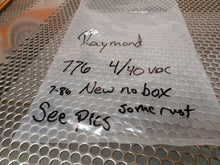 Raymond
776 4/40 VDC
7-86 New no box
some rust
See pics